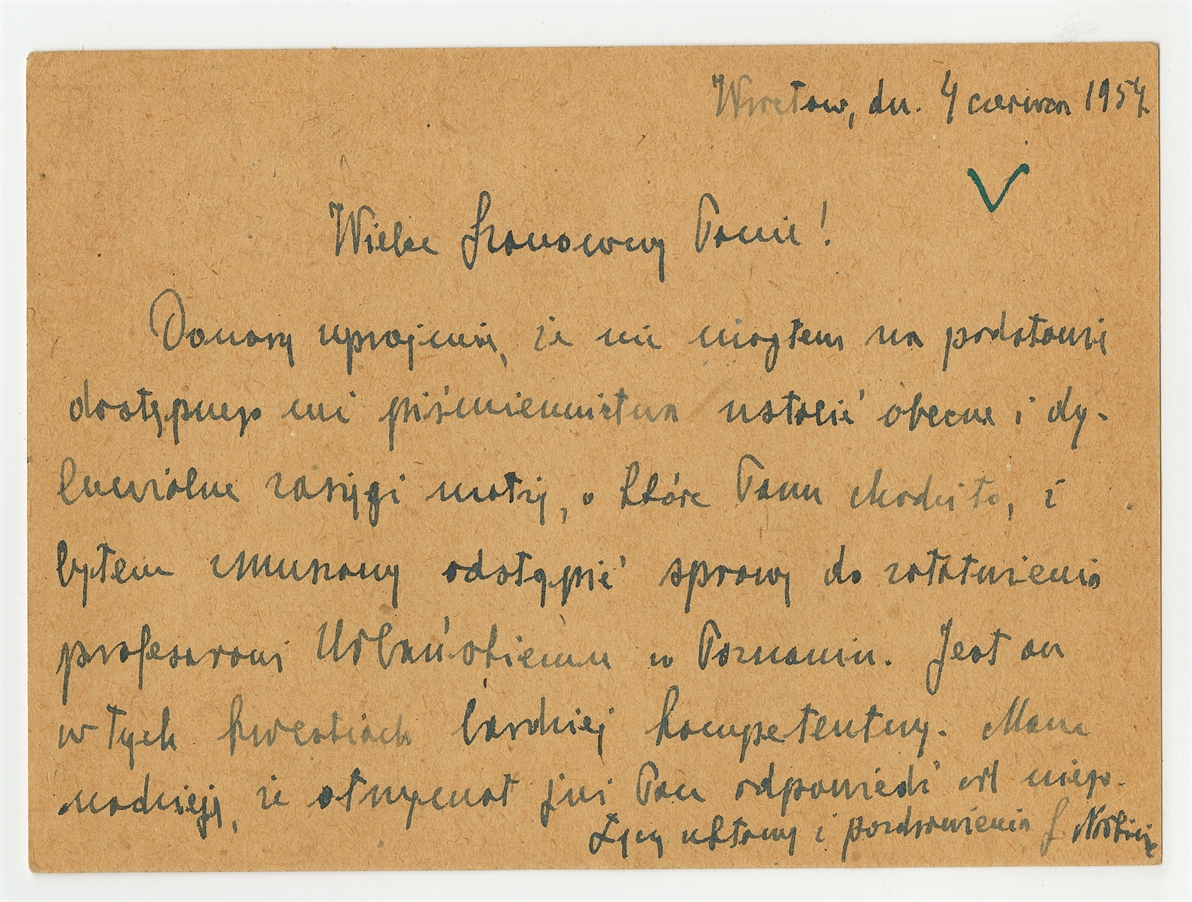 Wrocław, dn. 4 czerwca 1954.
Wielce Szanowny Panie!
Donoszę uprzejmie, że nie mogłem na podstawie
dostępnego mi piśmiennictwa ustalić obecne i dy-
luwialne zasięgi małży, o które Panu chodziło, i
byłem zmuszony odstąpić sprawę do załatwienia
profesorowi Urbańskiemu w Poznaniu. Jest on
w tych kwestiach bardziej kompetentny. Mam
nadzieję, że otrzymał już Pan odpowiedź od niego.
Łączę ukłony i pozdrowienia J.